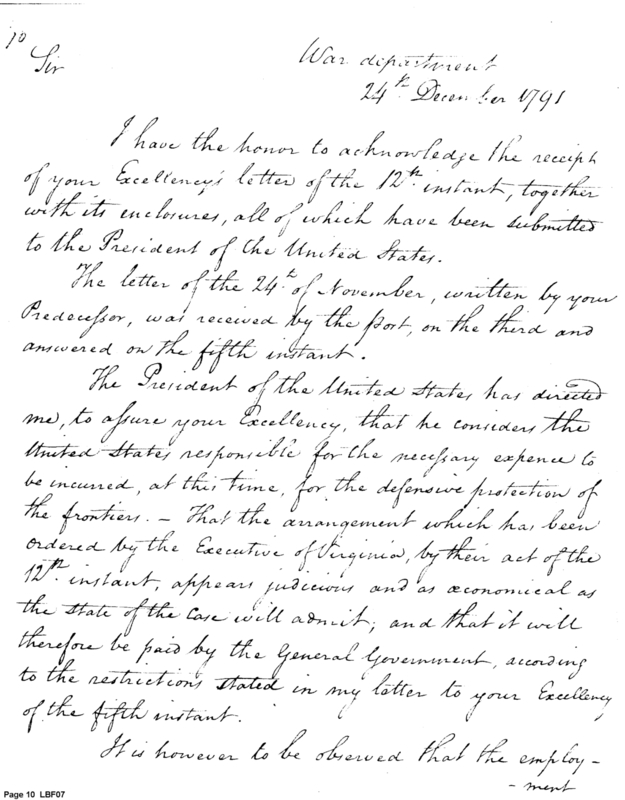 10
Sir
War department
24th December 1791
I have the honor to acknowledge the receipt
of your Excellency's letter of the 12th instant, together
with its enclosures, all of which have been submitted
to the President of the United States.
The letter of the 24th of November, written by your
Predecessor, was received by the post, on the third and
answered on the fifth instant.
The President of the United States has directed
me, to assure your Excellency, that he considers the
United States responsible for the necessary expence to
be incurred, at this time, for the defensive protection of
the frontiers. — That the arrangement which has been
ordered by the Executive of Virginia, by their act of the
12th instant, appears judicious and as œconomical as
the state of the case will admit; and that it will
therefore be paid by the General Government, according
to the restrictions stated in my letter to your Excellency
of the fifth instant.
It is however to be observed that the employ-
-ment
Page 10 LBF07